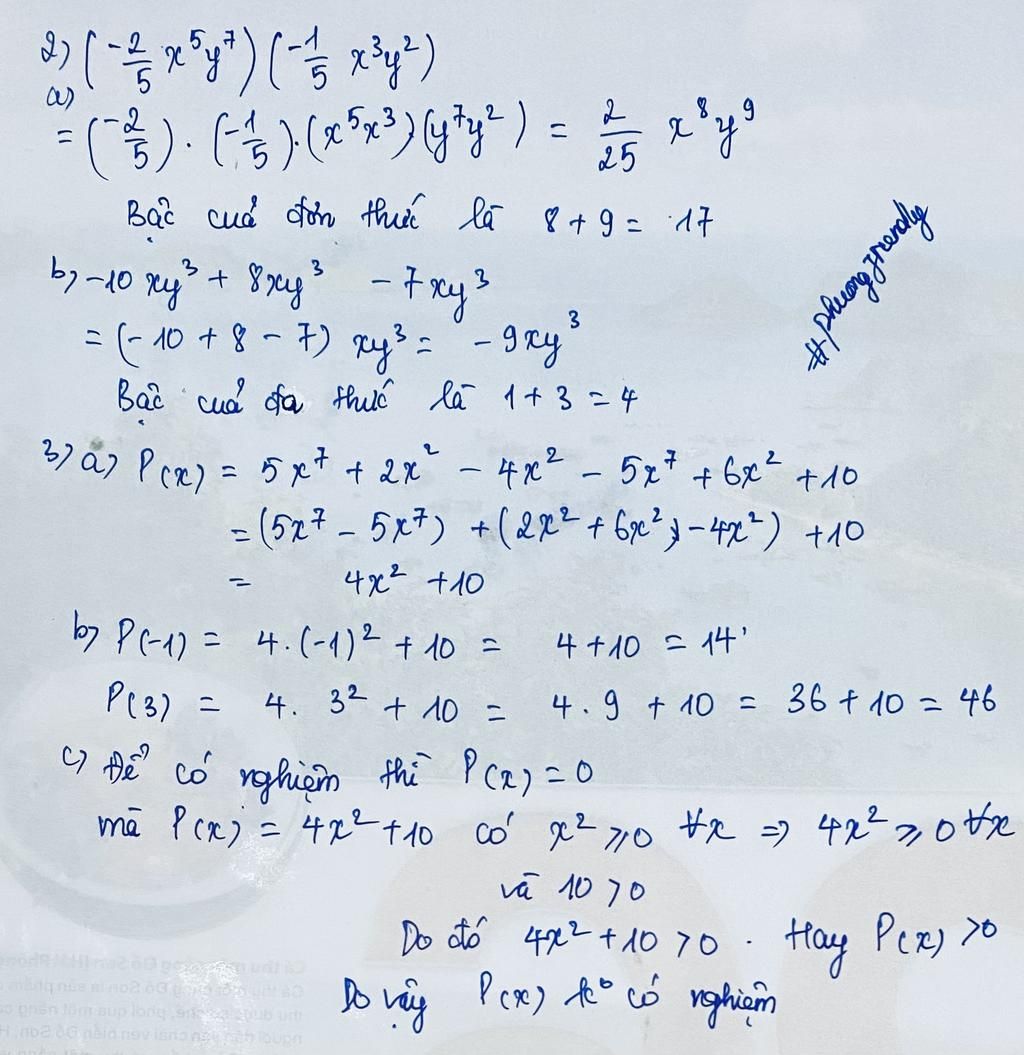 2) (-2/5 x⁵y⁷) (-1/5 x³y²)
a)
= (-2/5) . (-1/5).(x⁵x³)(y⁷y²) = 2/25 x⁸y⁹
Bậc cuả đơn thức là 8 + 9 = 17
b) -10 xy³ + 8xy³ - 7xy³
= (-10 + 8 - 7) xy³ = - 9xy³
#phuongfriendly
Bậc cuả đa thức là 1 + 3 = 4
3) a) P(x) = 5x⁷ + 2x² - 4x² - 5x⁷ + 6x² + 10
= (5x⁷ - 5x⁷) + (2x² + 6x² - 4x²) + 10
= 4x² + 10
b) P(-1) = 4.(-1)² + 10 = 4 + 10 = 14
P(3) = 4. 3² + 10 = 4 . 9 + 10 = 36 + 10 = 46
c) Để có nghiệm thì P(x) = 0
mà P(x) = 4x² + 10 có x² ⩾ 0 ∀x => 4x² ⩾ 0 ∀x
và 10 > 0
Do đó 4x² + 10 > 0 . Hay P(x) > 0
Do vậy P(x) k° có nghiệm